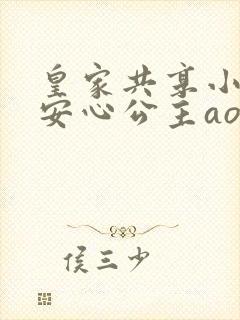 皇家共享小
安心公主ao
侯三少